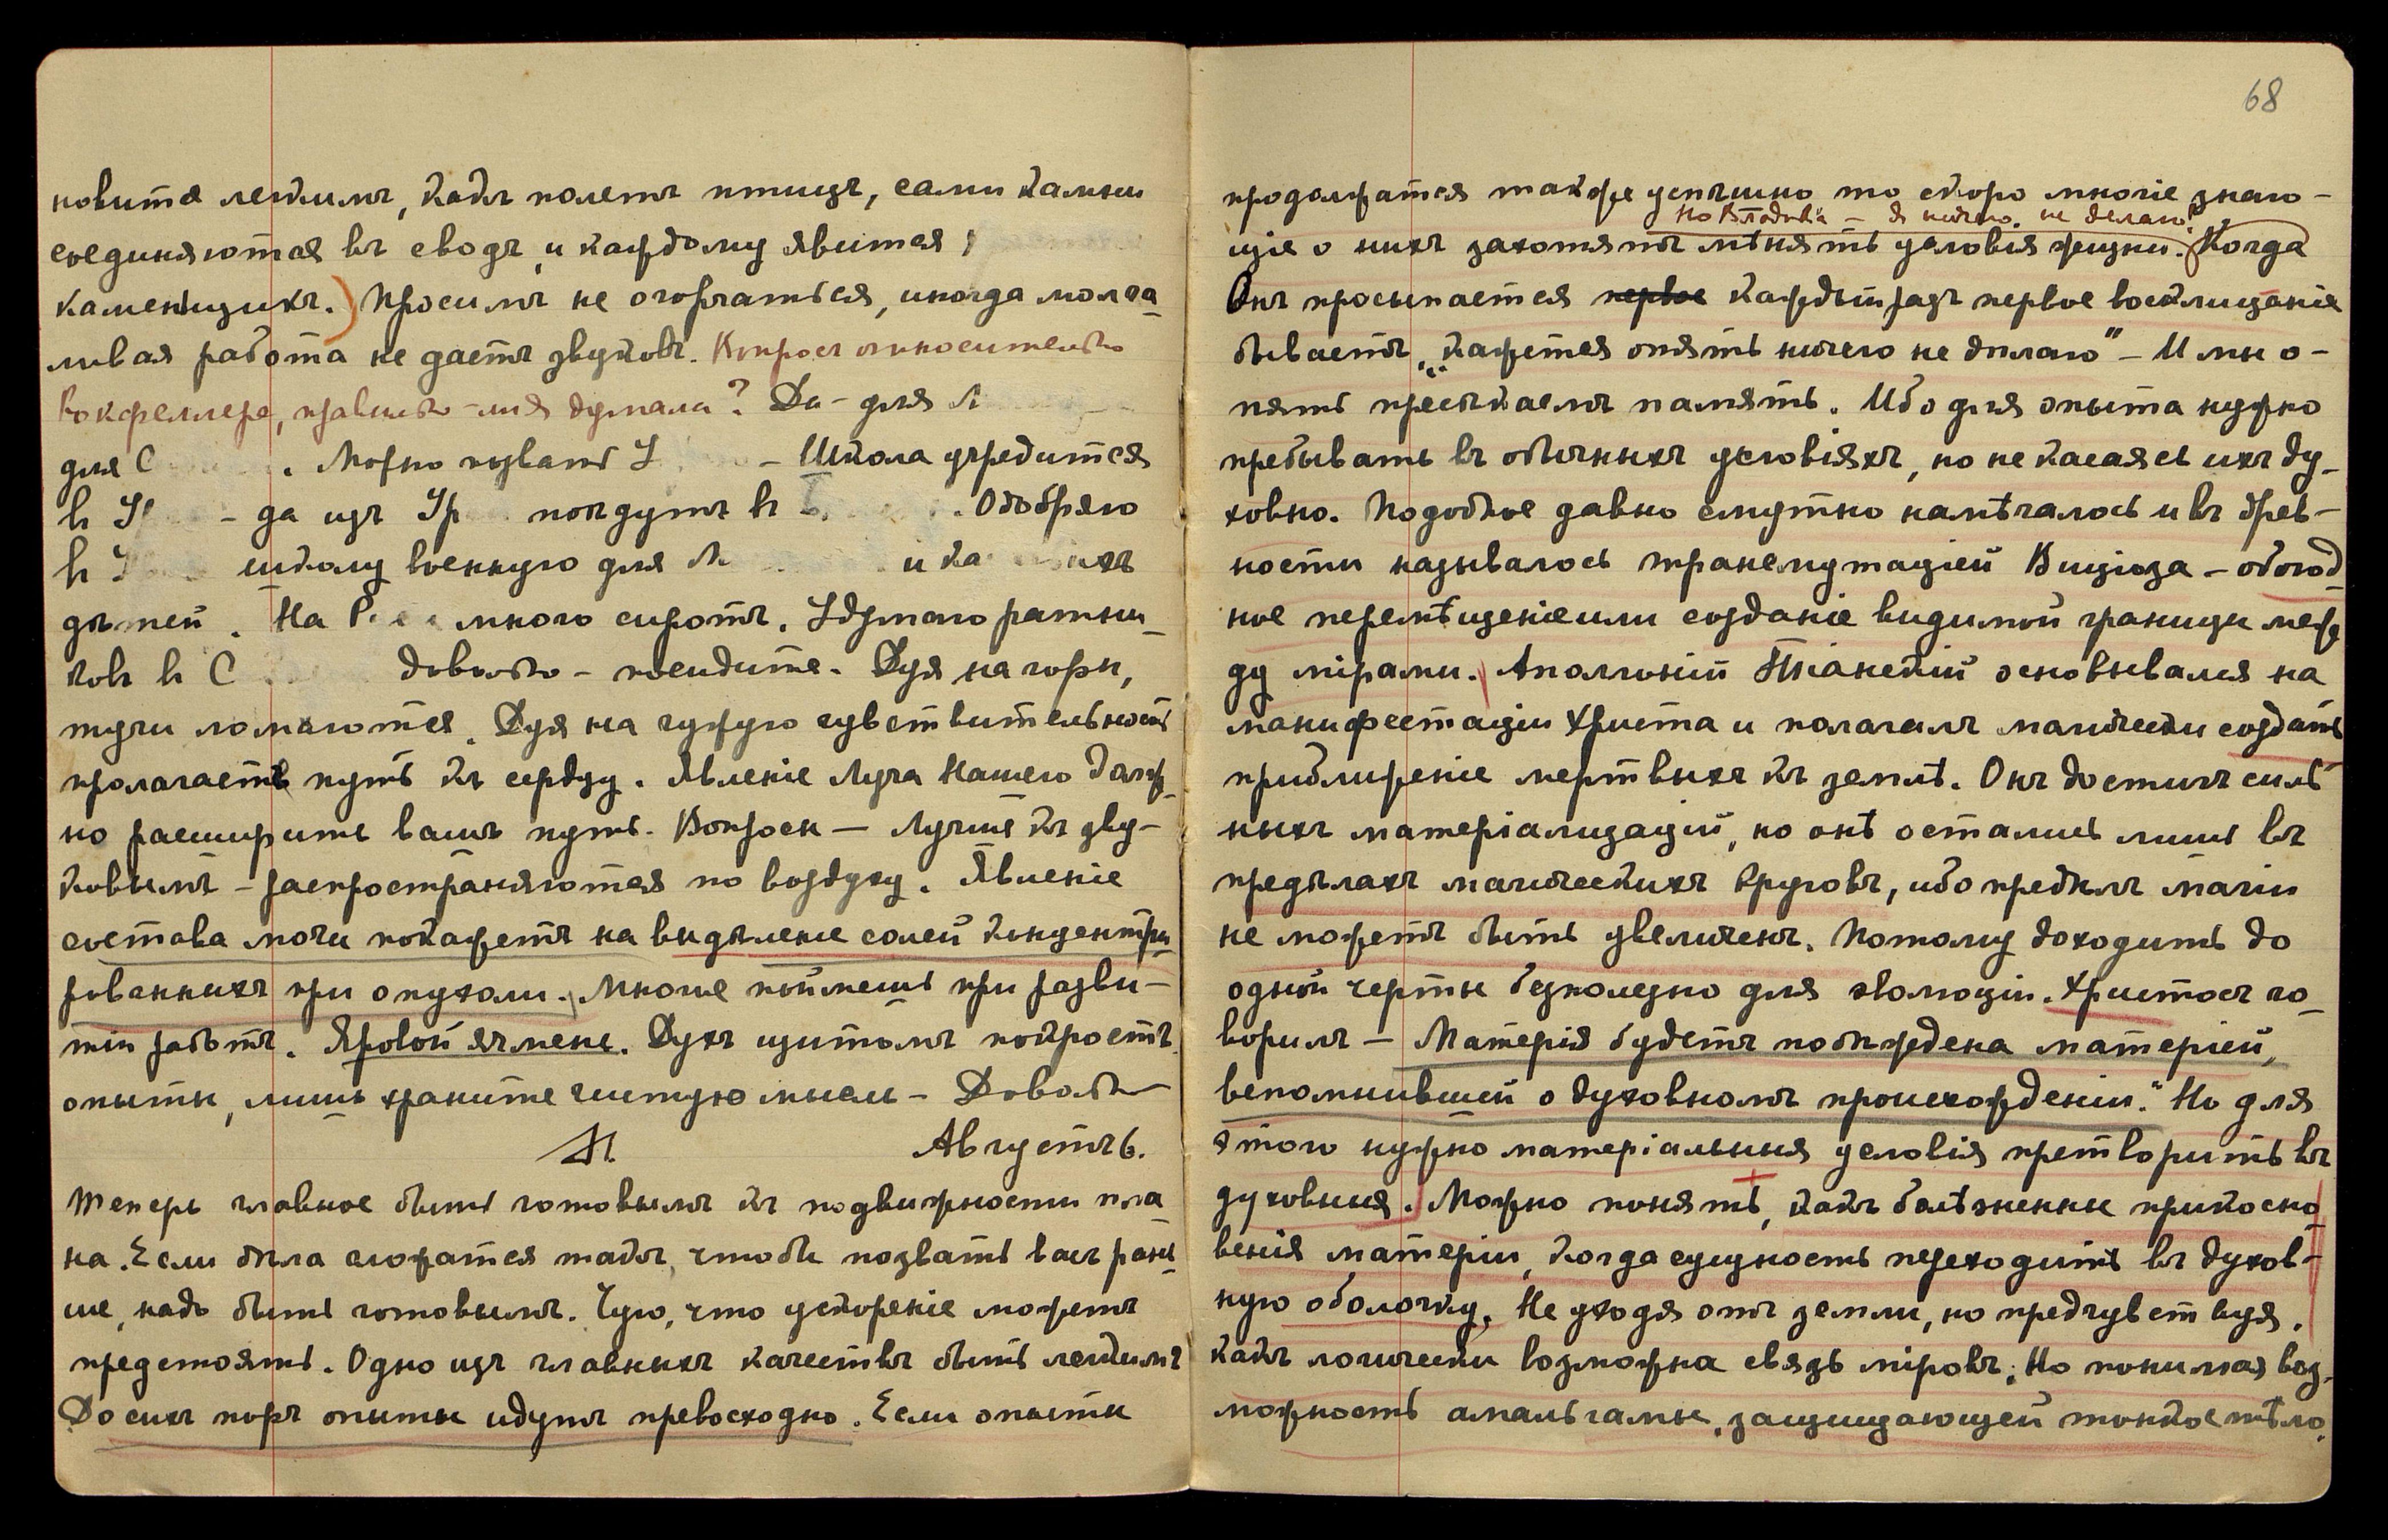 новится легкимъ, какъ полетъ птицъ, сами камни
соединяются въ сводъ, и каждому явится
каменщикъ.) Просимъ не огорчаться, иногда молча-
ливая работа не даетъ звуковъ. Вопросъ относительно
Рокфеллера, правильно-ли я думала? Да – для
для С . Можно назвать – Школа учредится
въ – да изъ пойдутъ въ . Одобряю
въ школу военную для и
дѣтей. На много сиротъ. Я думаю ратни-
ковъ въ С Довольно – посидите. Дуя на горы,
тучи ломаются. Дуя на чужую чувствительность
пролагаетъ путь къ сердцу. Явленіе Луча Нашего долж-
но расширить вашъ путь. Вопросы – Лучше къ зву-
ковымъ – распространяются по воздуху. Явленіе
состава мочи покажетъ на выдѣленіе солей концентри-
рованныхъ при опухоли. Многое поймешь при разви-
тіи работъ. Яровой ячмень. Духъ щитомъ покроетъ
опыты, лишь храните чистую мысль – Довольно
Августъ 6.
Теперь главное быть готовымъ къ подвижности пла-
на. Если дѣла сложатся такъ, чтобы позвать васъ рань-
ше, надо быть готовымъ. Чую, что ускореніе можетъ
предстоять. Одно изъ главныхъ качествъ быть легкимъ
До сихъ поръ опыты идутъ превосходно. Если опыты
68
продолжатся также успѣшно то скоро многіе знаю-
Но Владыка – я ничего не дѣлаю!
щіе о нихъ захотятъ мѣнять условія жизни. (Когда
Онъ просыпается первое каждый разъ первое восклицаніе
бываетъ, „кажется опять ничего не дѣлаю" – И мы о-
пять пресѣкаемъ память. Ибо для опыта нужно
пребывать въ обычныхъ условіяхъ, но не касаясь ихъ ду-
ховно. Подобное давно смутно намѣчалось и въ древ-
ности называлось трансмутаціей Вищюза – обоюд-
ное перемѣщеніе или созданіе видимой границы меж-
ду мірами. Аполлоній Тіанскій основывался на
манифестаціи Христа и полагалъ магически создать
приближеніе мертвыхъ къ землѣ. Онъ достигъ силь
ныхъ матеріализацій, но онѣ остались лишь въ
предѣлахъ магическихъ круговъ, ибо предѣлъ магіи
не можетъ быть увеличенъ. Потому доходить до
одной черты безполезно для эволюціи. Христосъ го-
ворилъ – Матерія будетъ побѣждена матеріей,
вспомнившей о духовномъ происхожденіи." Но для
этого нужно матеріальныя условія претворить въ
духовныя. Можно понять, какъ болѣзненны прикосно-
венія матеріи, когда сущность переходитъ въ духов-
ную оболочку. Не уходя отъ земли, но предчувствуя,
какъ логически возможна связь міровъ; Но понимая воз-
можность амальгамы, защищающей тонкое тѣло,